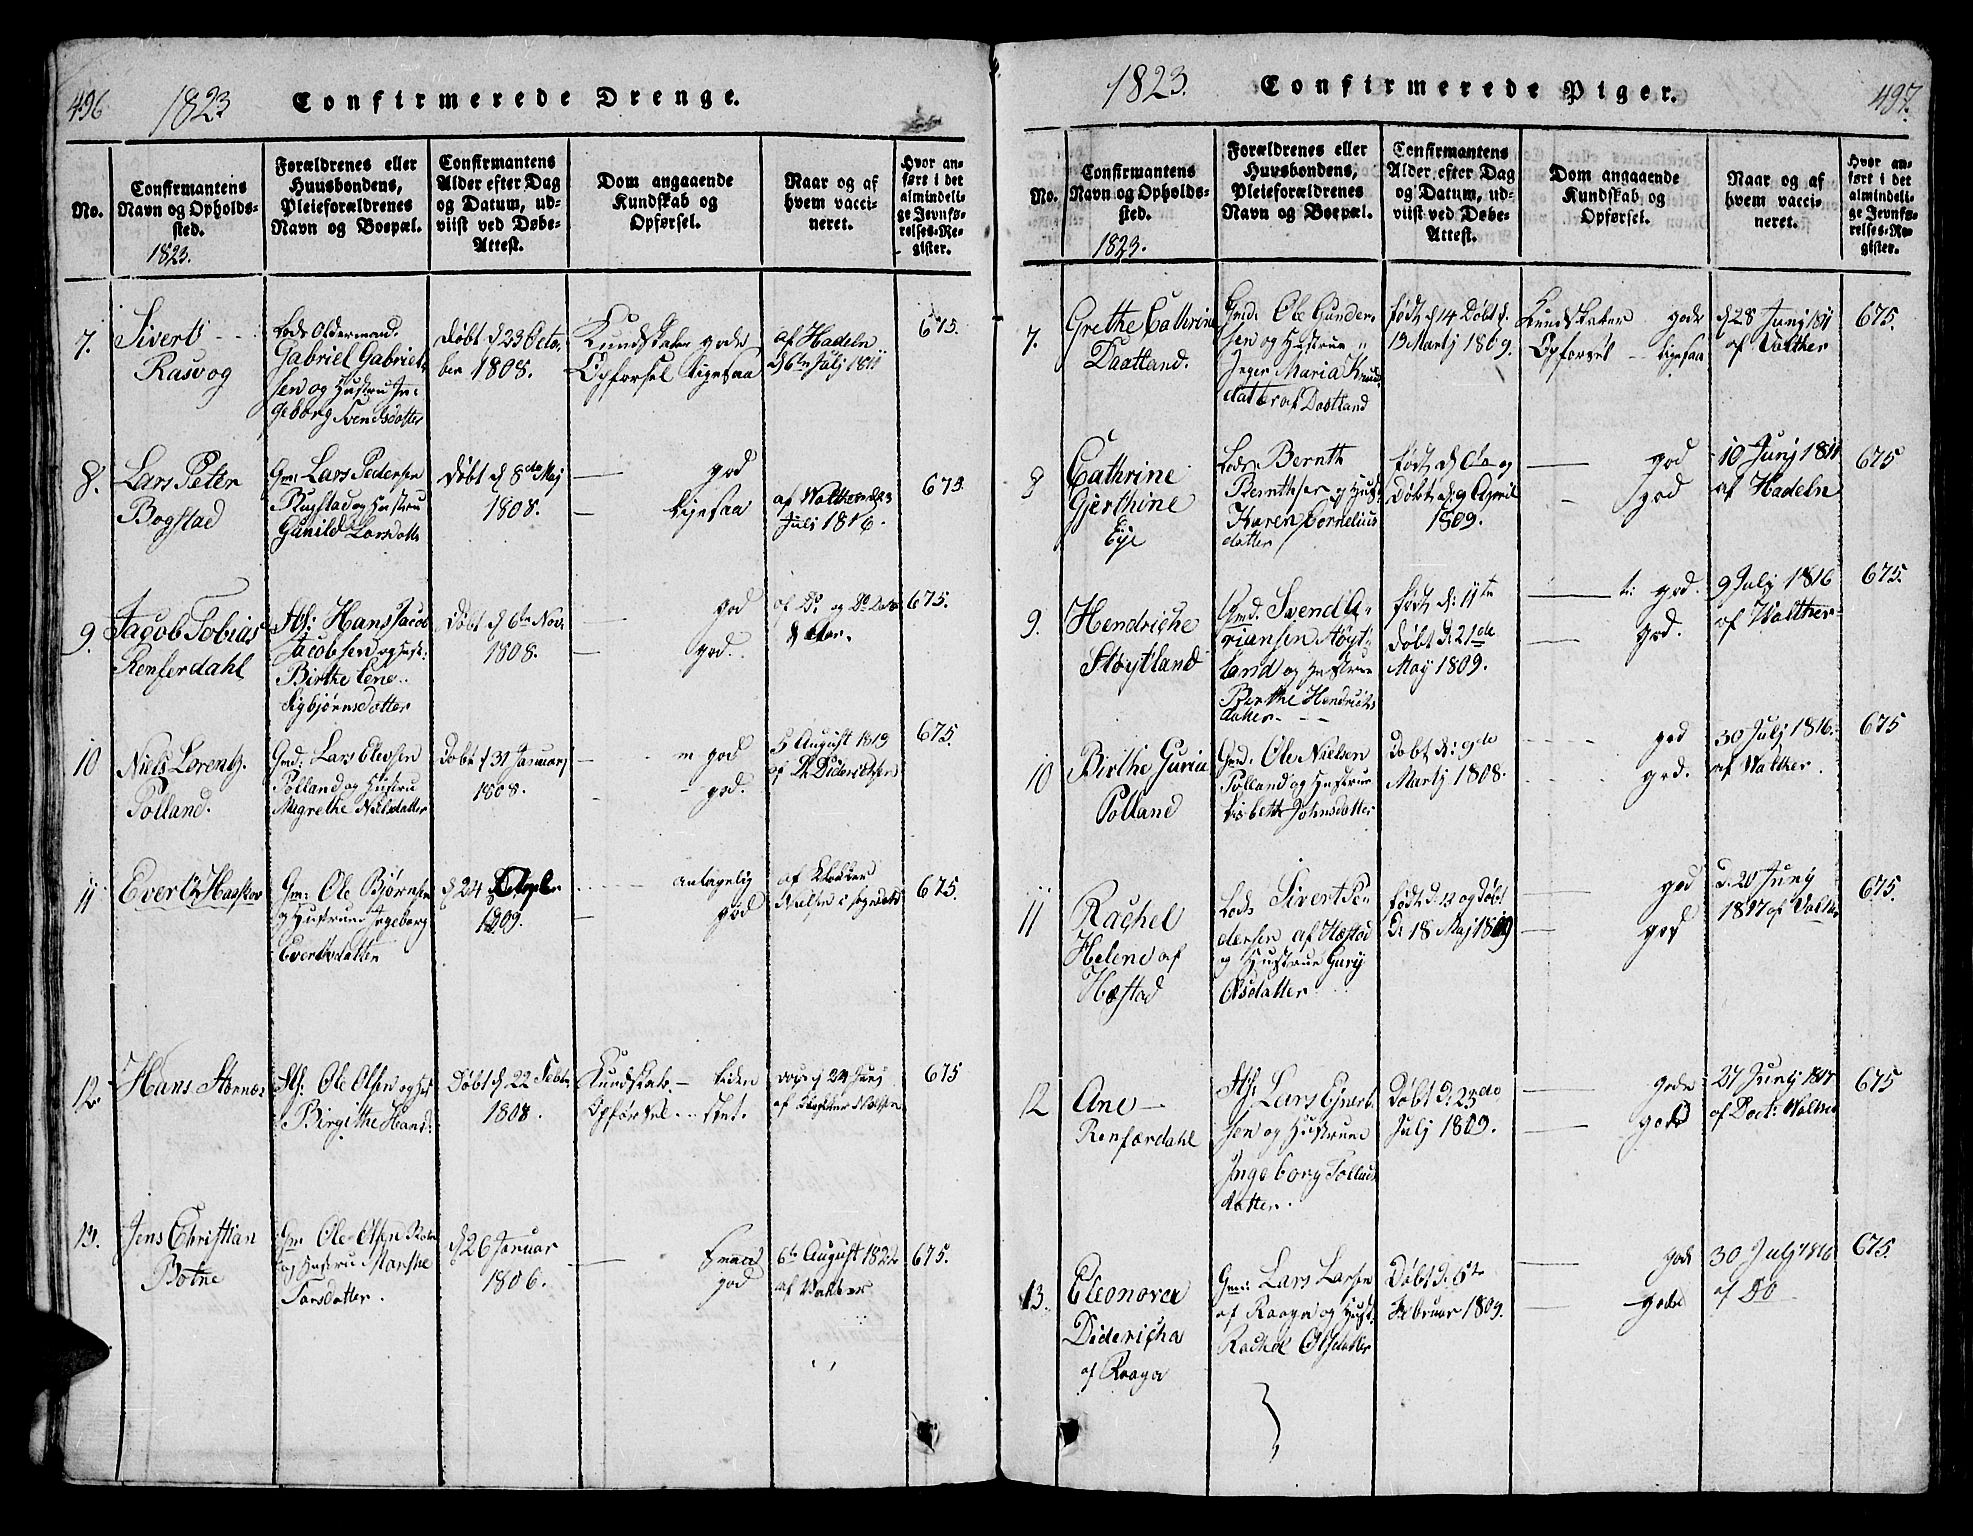 496
1823
Confirmerede Drenge.
No.
Confirmantens
Navn og Opholds-
sted.
1823.
Forældrenes eller
Huusbondens,
Pleieforældrenes
Navn og Boepæl.
Confirmantens
Alder efter Dag
og Datum, ud-
viist ved Døbe-
Attest.
Dom angaaende
Kundskab og
Opførsel.
Naar og af
hvem vacci-
neret.
Hvor an-
ført i det
almindeli-
ge Jevnfø-
relses-Re-
gister.
7.
Sivert
Rasvog
Lods Oldermand
Gabriel Gabriel-
sen og Hustru In-
geborg Svendsdatter
Døbt d 23 Octo-
ber 1808.
Kundskaber gode
Opførsel ligesaa
af Hadeln
d 6te Julj 1811
675.
8.
Lars Peter
Bogstad
Gmd: Lars Pedersen
Bugstad og Hustru
Gunild Larsdatter
Døbt d 8de Maj
1808.
god
ligesaa
af Walther d 23
Juli 1816.
675.
9.
Jacob Tobias
Renferdahl
Hans Jacob
Jacobsen og Hust:
Birthe Lene
Sigbjørnsdatter
Døbt d 6te Nov.
1808.
god
god.
af Do og Do Dato
675.
10
Niels Lorentz
Polland.
Gmd: Lars Elevsen
Polland og Hustru
Megrethe Nielsdatter
Døbt d 31 Januarj
1808.
m god
god.
5 August 1813
af Dr Diderichsen
675.
11
Evert Haaskov
Gm: Ole Bjørnsen
og Hustrue Ingeborg
Evertsdatter
d 24
1809.
antagelig
god
af
Nielsen
675.
12
Hans Stornæs
Ole Olsen og Hust
Birgithe Hansd:
Døbt d 22 Febr.
1808.
Kundskab - liden
Opførsel - stet.
24 Junj
675
13.
Jens Christian
Botne
Gm: Ole Olsen Botne
og Hustru Marthe
Torsdatter.
d 26 Januar
1806.
god
6te August 1822
af Walther
675.
1823.
Confirmerede Piger.
497.
No.
Confirmantens
Navn og Opholds-
sted.
1823.
Forældrenes eller
Huusbondens,
Pleieforældrenes
Navn og Boepæl.
Confirmantens
Alder efter Dag
og Datum, ud-
viist ved Døbe-
Attest.
Dom angaaende
Kundskab og
Opførsel.
Naar og af
hvem vacci-
neret.
Hvor an-
ført i det
almindeli-
ge Jevnfø-
relses-Re-
gister.
7.
Grethe Cathrine
Daatland.
Gmd: Ole Gunder-
sen og Hustrue
Inger Maria Knud
datter af Daatland
født d 14 Døbt d.
19 Martj 1809.
Kundskaber gode
Opførsel ligesaa
d 28 Junj 1811
af Walther
675.
8
Cathrine
Gjerthine
Eye
Lods Bernth
Bernthsen og Hust.
Karen Cornelius
datter
født d 6te og
Døbt d: 9 April
1809.
god
god
10 Junj 1811
af Hadeln
675
9.
Hendriche
Støytland
Gmd: Svend A-
riansen Støyt-
land og Hustrue
Berthe Hendrichs
datter
født d: 11te
døbt d: 21de
May 1809.
t: god.
god.
9 July 1816
af Walther
675.
10
Birthe Guria
Polland
Gmd: Ole Nielsen
Polland og Hustrue
Lisbeth Johnsdatter
Døbt d: 9de
Martj 1808.
god
god.
30 Julj 1816.
af Walther.
675
11
Rachel
Helene af
Hæstad
Lods Sivert Pe-
dersen af Hæstad
og Hustrue Gurij
Olsdatter
født d: 12 og Døbt
D: 18 Maj 1809
god
god
d: 20 Junj
1817 af Walther
675.
12
Ane
Renfærdahl
Lars Ejvert-
sen og Hustrue
Ingeborg Tollachs
datter.
Døbt D: 23de
Julj 1809.
gode
gode
27 Junj 1817
af Doct: Walther
675
13.
Eleonora
Didericha
af Raagen
Gm: Lars Larsen
af Raagen og Hust:
Rachel Olsdatter
Døbt d: 5te
Februar 1809.
gode
gode
30 Julj 1816
af Do
675.